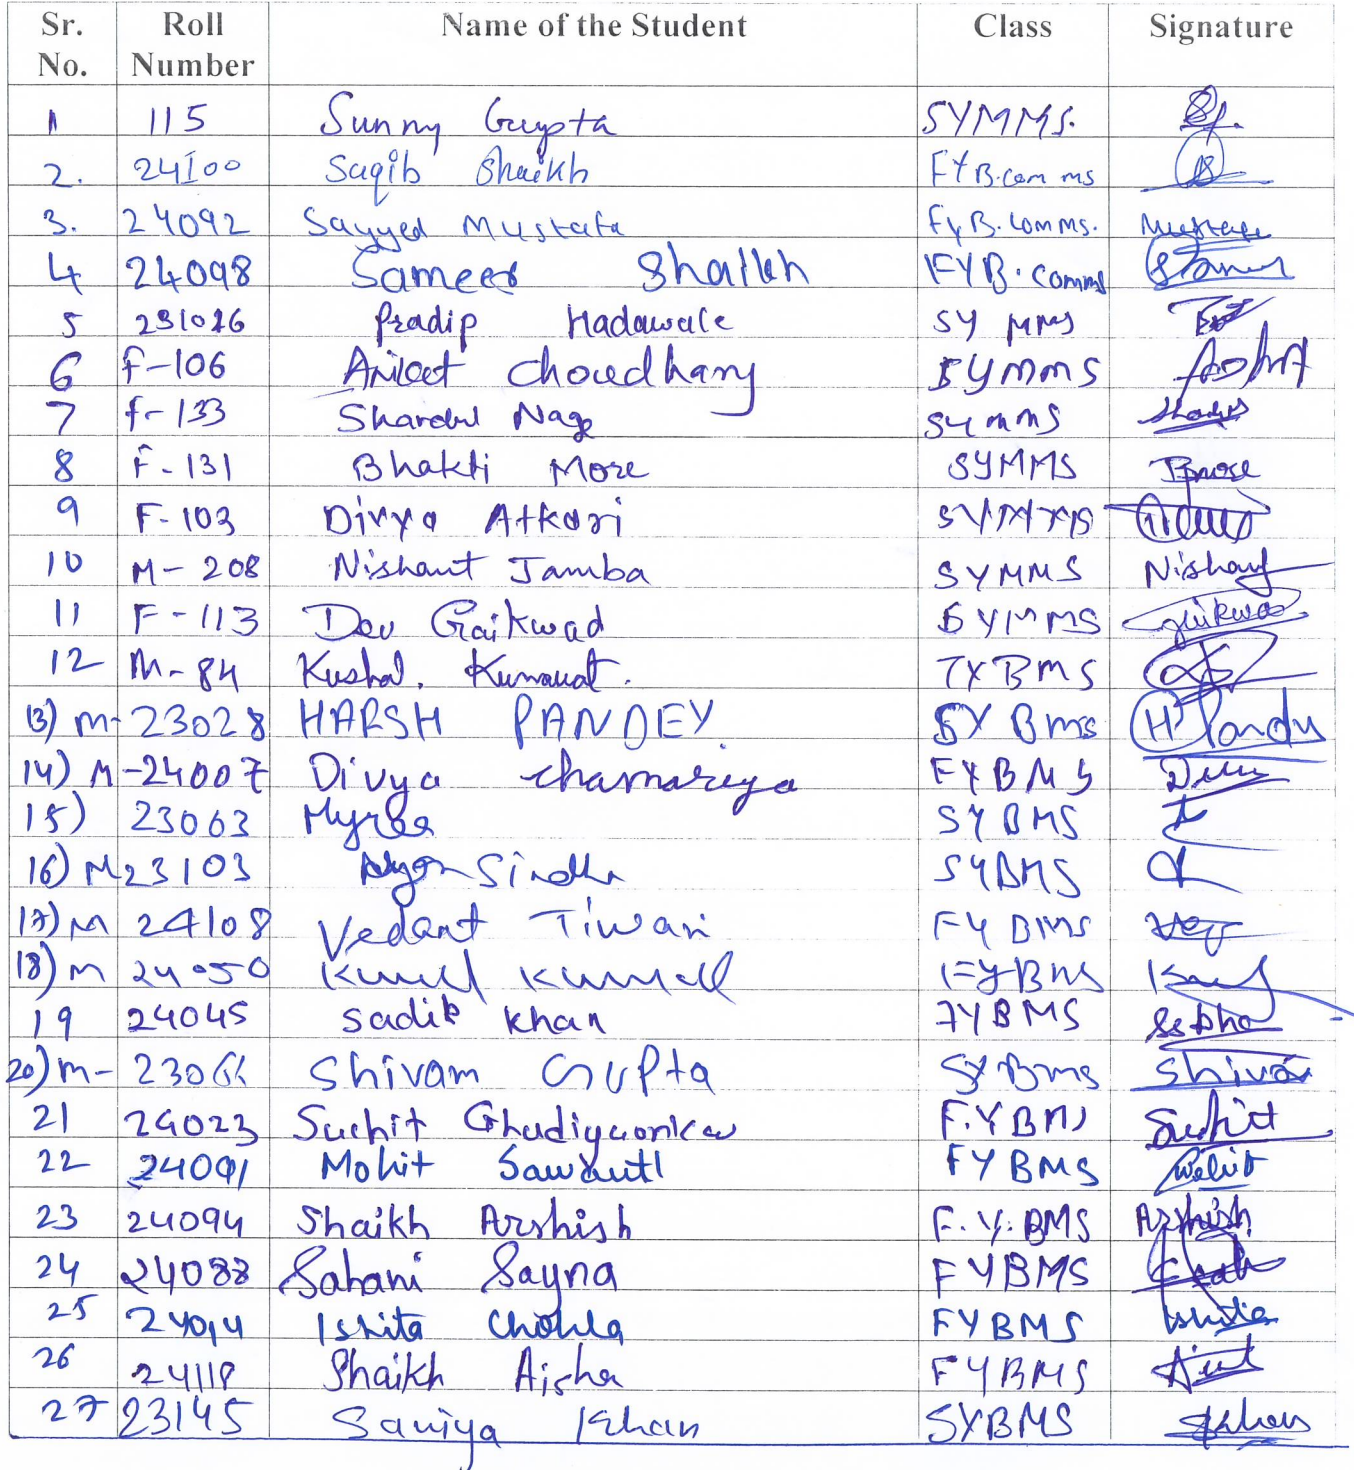 Sr. No. Roll Number Name of the Student Class Signature
1 115 Sunny Gupta SYMMS.
2. 24100 Saqib Shaikh FYB.com ms
3. 24092 Sayyed Mustafa FyB.comms. Mustafa
4 24098 Sameer Shaikh FYB.comms
5 231026 Pradip Hadawale SY MMS
6 F-106 Aniket Choudhary SYmms
7 f-133 Shardul Nage Symms
8 F-131 Bhakti More SYMMS Bmore
9 F-103 Divya Atkari SYMMS
10 M-208 Nishant Jamba SYMMS Nishant
11 F-113 Dev Gaikwad SYMMS Gaikwad
12 M-84 Kushal. Kumawat. TYBMS
13) m-23028 HARSH PANDEY. SYBms H Pandey
14) M-24007 Divya Chamariya FYBMS
15) 23063 SYBMS
16) M23103 SYBMS
17) M 24108 Vedant Tiwari FYBMS
18) m 24050 FYBMS
19 24045 sadik khan FYBMS
20) m- Shivam Gupta SYBms Shivam
21 24023 Suchit F.YBMS Suchit
22 24091 Mohit FYBMS Mohit
23 24094 Shaikh Arshish F.Y.BMS Arshish
24 24088 Sahani Sayna FYBMS
25 24014 Ishita FYBMS Ishita
26 Shaikh Aisha FYBMS
27 23145 Saniya Khan SYBMS Skhan